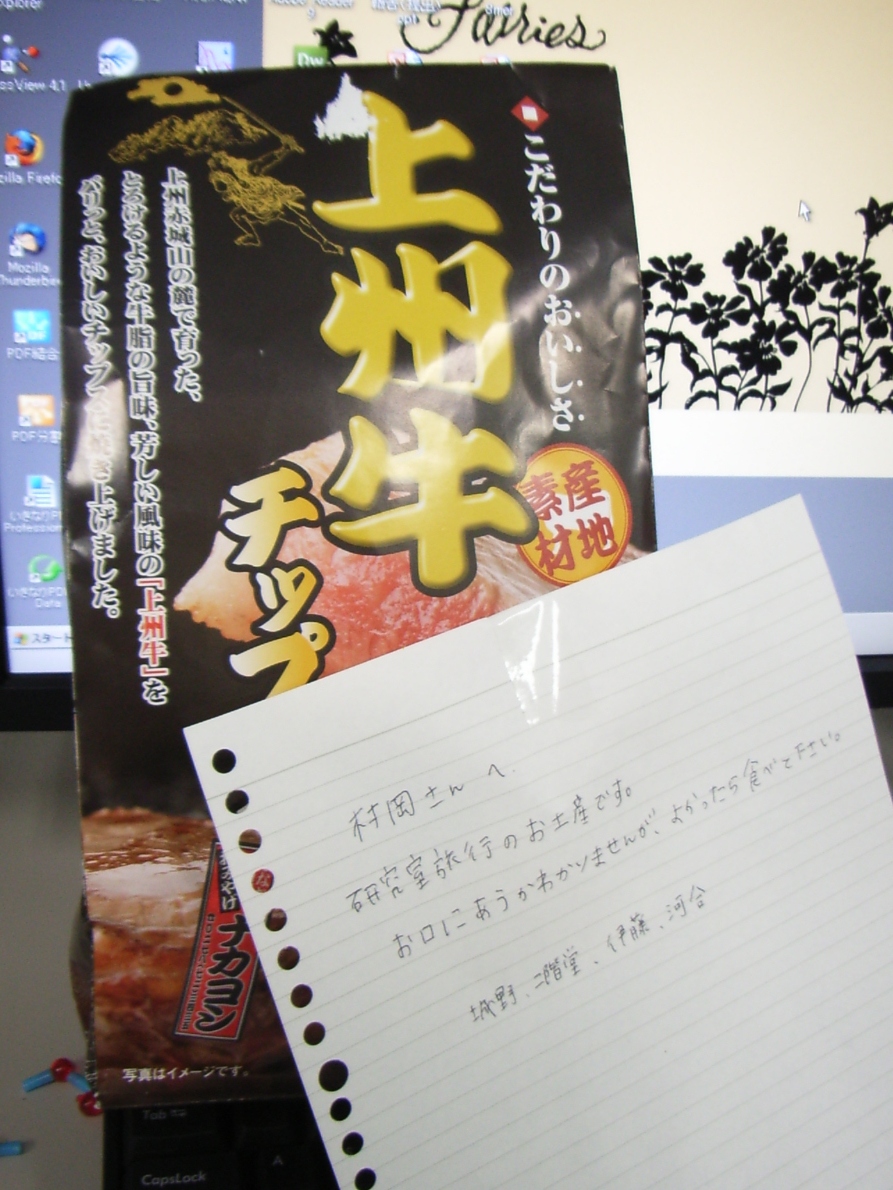 Fairies
Dw
zilla Firefo
Mozilla
Thunderbe
PDF結合
PDF分
いきなりP
Professio
いきなりPD
Data
スタート
こだわりのおいしさ
上州牛
チップ
産地
素材
上州赤城山の麓で育った、
とろけるような牛脂の旨味、芳しい風味の『上州牛』を
パリッと、おいしいチップスに焼き上げました。
ナカヨシ
写真はイメージです。
村岡さんへ.
研究室旅行のお土産です。
お口にあうかわかりませんが、よかったら食べて下さい。
城野、二階堂、伊藤、河合
Tab
CapsLock
A